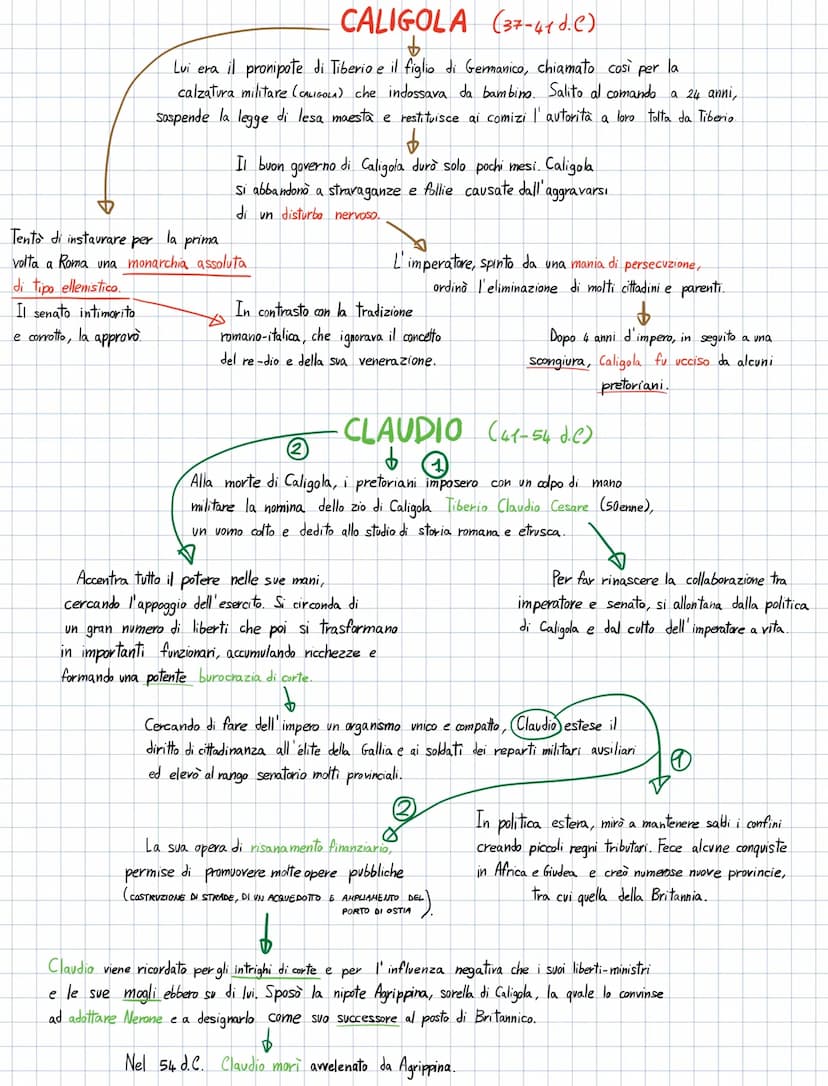 CALIGOLA (37-41 d.C)
Lui era il pronipote di Tiberio e il figlio di Germanico, chiamato così per la
calzatura militare (CALIGOLA) che indossava da bambino. Salito al comando a 24 anni,
sospende la legge di lesa maestà e restituisce ai comizi l'autorità a loro tolta da Tiberio
Il buon governo di Caligola durò solo pochi mesi. Caligola
si abbandonò a stravaganze e follie causate dall'aggravarsi
di un disturbo nervoso.
Tentò di instaurare per la prima
volta a Roma una monarchia assoluta
di tipo ellenistico.
Il senato intimorito
e corrotto, la approvò.
In contrasto con la tradizione
romano-italica, che ignorava il concetto
del re-dio e della sua venerazione.
L'imperatore, spinto da una mania di persecuzione,
ordinò l'eliminazione di molti cittadini e parenti.
Dopo 4 anni d'impero, in seguito a una
scongiura, Caligola fu ucciso da alcuni
pretoriani.
CLAUDIO (41-54 d.C)
2
1
Alla morte di Caligola, i pretoriani imposero con un colpo di mano
militare la nomina dello zio di Caligola Tiberio Claudio Cesare (50enne),
un uomo colto e dedito allo studio di storia romana e etrusca.
Accentra tutto il potere nelle sue mani,
cercando l'appoggio dell'esercito. Si circonda di
un gran numero di liberti che poi si trasformano
in importanti funzionari, accumulando ricchezze e
formando una potente burocrazia di corte.
Per far rinascere la collaborazione tra
imperatore e senato, si allontana dalla politica
di Caligola e dal culto dell'imperatore a vita.
Cercando di fare dell'impero un organismo unico e compatto, Claudio estese il
diritto di cittadinanza all'élite della Gallia e ai soldati dei reparti militari ausiliari
ed elevò al rango senatorio molti provinciali.
1
2
In politica estera, mirò a mantenere saldi i confini
creando piccoli regni tributari. Fece alcune conquiste
in Africa e Giudea e creò numerose nuove provincie,
tra cui quella della Britannia.
La sua opera di risanamento finanziario,
permise di promuovere molte opere pubbliche
(COSTRUZIONE DI STRADE, DI UN ACQUEDOTTO E AMPLIAMENTO DEL
PORTO DI OSTIA).
Claudio viene ricordato per gli intrighi di corte e per l'influenza negativa che i suoi liberti-ministri
e le sue mogli ebbero su di lui. Sposò la nipote Agrippina, sorella di Caligola, la quale lo convinse
ad adottare Nerone e a designarlo come suo successore al posto di Britannico.
Nel 54 d.C. Claudio morì avvelenato da Agrippina.